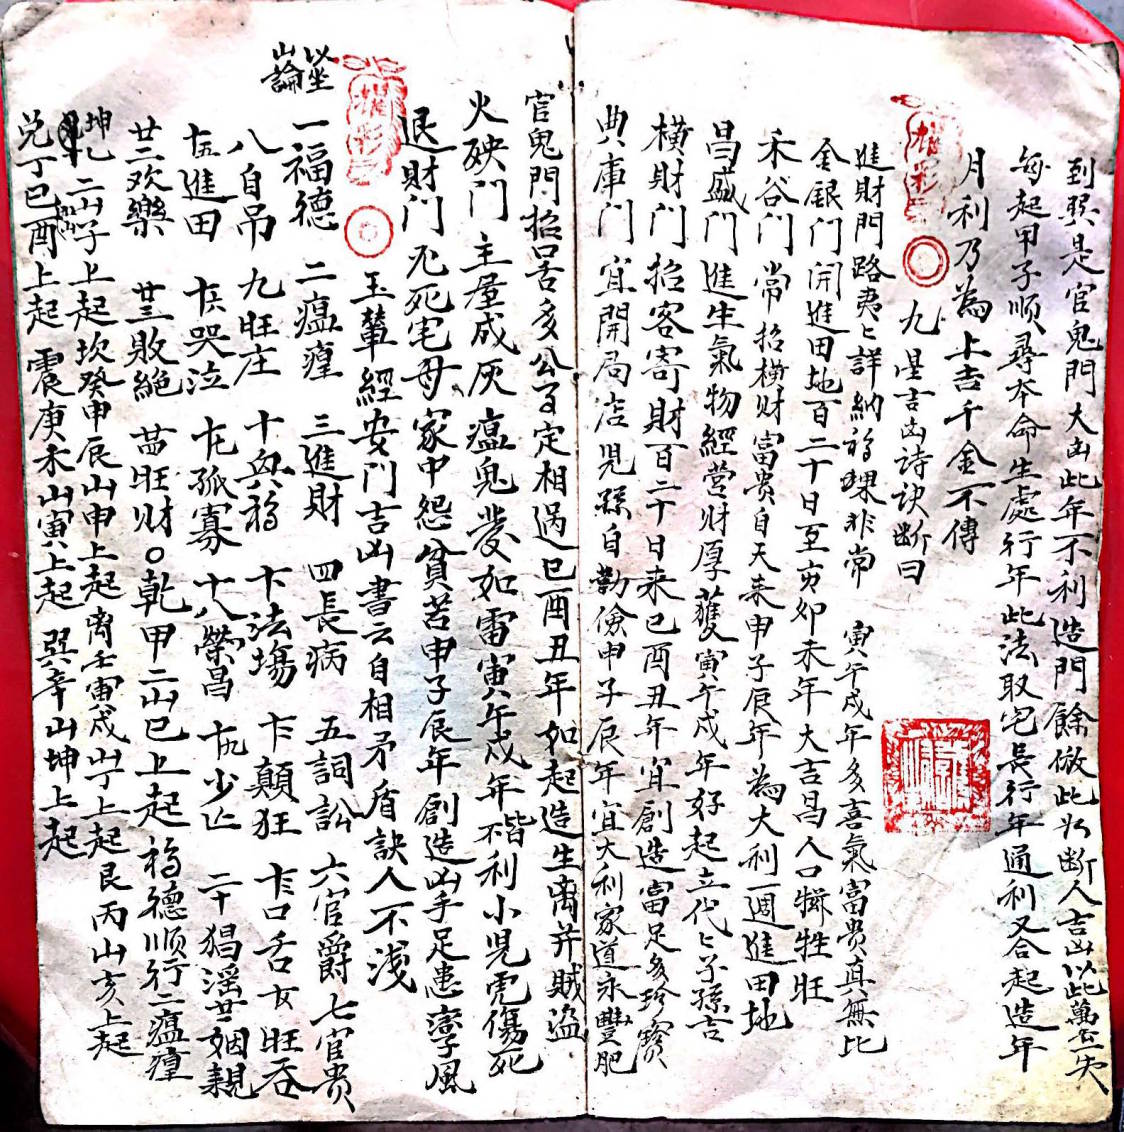 到照是官鬼門大凶此年不利造門餘倣此以断人吉凶以此萬無一失
每起甲子順尋本命生處行年此法取宅長行年通利又合起造年
月利乃為上吉千金不傳
九星吉凶詩訣断曰
進財門路夷〻詳納福課非常 寅午戌年多喜氣富贵真無比
金銀门開進田地百二十日至亥卯未年大吉昌人口犧牲旺
禾谷门常招横财富贵自天来申子辰年為大利一週進田地
昌盛门進生氣物經营财厚獲寅午戌年好起立代〻子孫吉
横財门招客寄財百二十日来巳酉丑年宜創造富足多珍寳
典庫门宜開局店兒孫自勤儉申子辰年宜大利家道永豐肥
官鬼門招呂多公事定相遇巳酉丑年如起造生离并贼盗
火殃门主屋成灰瘟鬼發如雷寅午戌年不揩利小児虎傷死
退財门兄死宅母家中怨貧苦申子辰年創造凶手足患瘮風
玉輦經安门吉凶書云自相矛盾訣人不浅
以坐山論
一福德 二瘟癀 三進財 四長病 五詞訟 六官爵 七官贵
八自吊 九旺庄 十興福 十一法塲 十二顛狂 十三口舌 十四旺蚕
十五進田 十六哭泣 十七孤寡 十八榮昌 十九少亡 二十猖淫 廿一姻親
廿二欢樂 廿三敗絶 廿四旺财○乾甲二山巳上起福德順行二瘟癀
坤乙二山子上起坎癸申辰山申上起离壬寅戌山丁上起艮丙山亥上起
兑丁巳酉上起 震庚未山寅上起 巽辛山坤上起